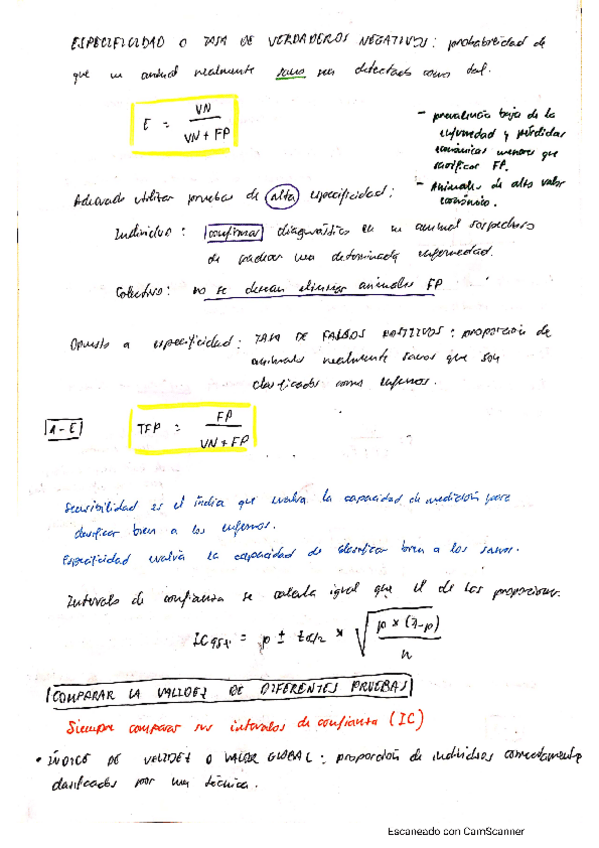 ESPECIFICIDAD O TASA DE VERDADEROS NEGATIVOS: probabilidad de
que un animal realmente sano sea detectado como tal.
E = VN / VN + FP
- prevalencia baja de la
enfermedad y pérdidas
económicas menores que
sacrificar FP.
- Animales de alto valor
económico.
Adecuado utilizar pruebas de alta especificidad:
Individuo: confirmar diagnóstico en un animal sospechoso
de padecer una determinada enfermedad.
Colectivo: no se desean eliminar animales FP
Opuesto a especificidad: TASA DE FALSOS POSITIVOS: proporción de
animales realmente sanos que son
clasificados como enfermos.
1-E TFP = FP / VN + FP
Sensibilidad es el índice que evalúa la capacidad de medición para
clasificar bien a los enfermos.
Especificidad evalúa la capacidad de clasificar bien a los sanos.
Intervalo de confianza se calcula igual que el de las proporciones.
IC95% = p ± tα/2 * √ p × (1-p) / n
COMPARAR LA VALIDEZ DE DIFERENTES PRUEBAS
Siempre comparar sus intervalos de confianza (IC)
• ÍNDICE DE VALIDEZ O VALOR GLOBAL: proporción de individuos correctamente
clasificados por una técnica.
Escaneado con CamScanner